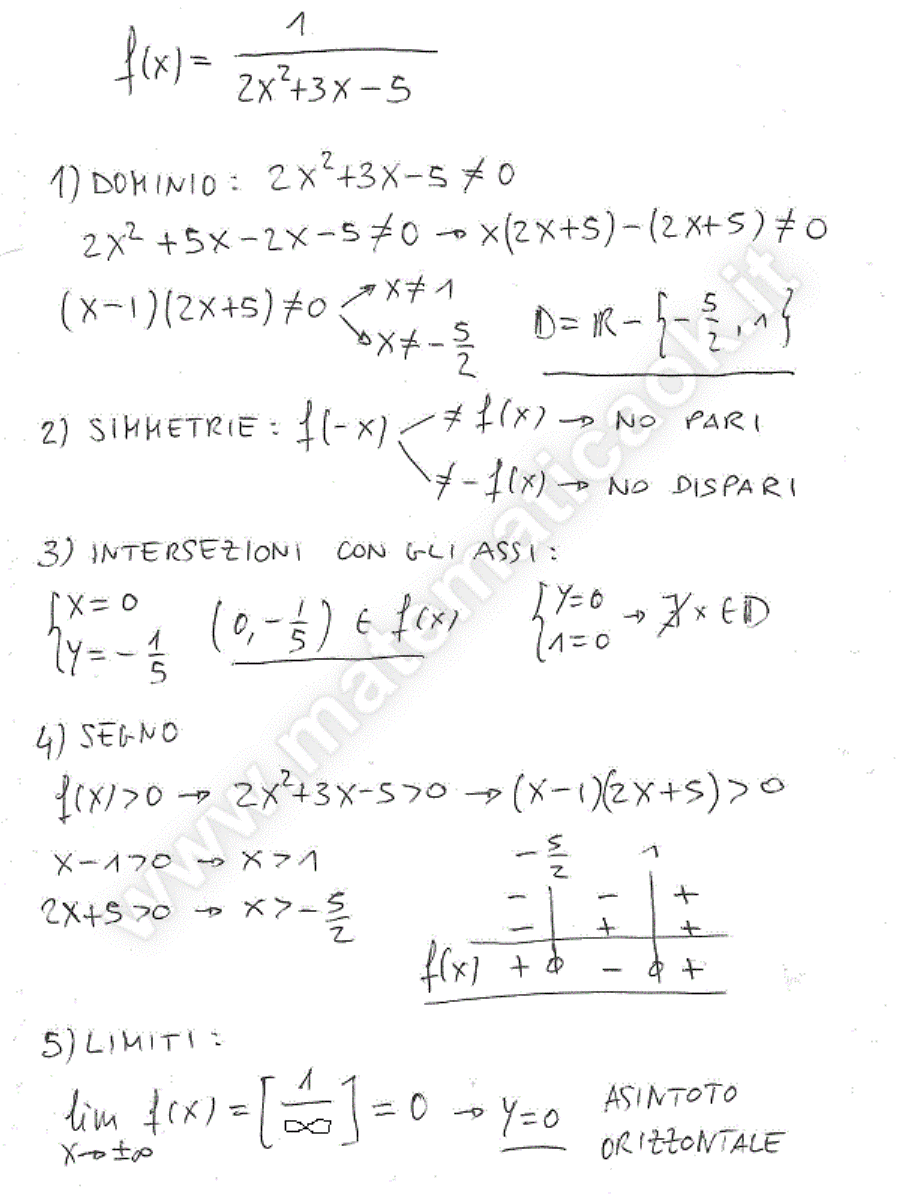 f(x) = 1 / (2x²+3x-5)
1) DOMINIO: 2x²+3x-5≠0
2x²+5x-2x-5≠0 → x(2x+5)-(2x+5)≠0
(x-1)(2x+5)≠0 ↗ x≠1
↘ x≠-5/2
D=ℝ-{-5/2, 1}
2) SIMMETRIE: f(-x) ≠ f(x) → NO PARI
≠ -f(x) → NO DISPARI
3) INTERSEZIONI CON GLI ASSI:
{x=0
{y=-1/5
(0,-1/5) ∈ f(x)
{y=0
{1=0
→ ∄x∈D
4) SEGNO
f(x)>0 → 2x²+3x-5>0 → (x-1)(2x+5)>0
x-1>0 → x>1
2x+5>0 → x>-5/2
-5/2 1
- | - | +
- | + | +
f(x) + ϕ - ϕ +
5) LIMITI:
lim x→±∞ f(x) = [1/∞] = 0 → y=0 ASINTOTO
ORIZZONTALE
www.matematicaok.it